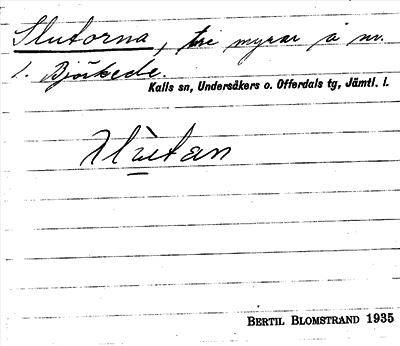 Slutorna, tre myrar å nv.
l. Björkede.
Kalls sn, Undersåkers o. Offerdals tg, Jämtl. l.
BERTIL BLOMSTRAND 1935